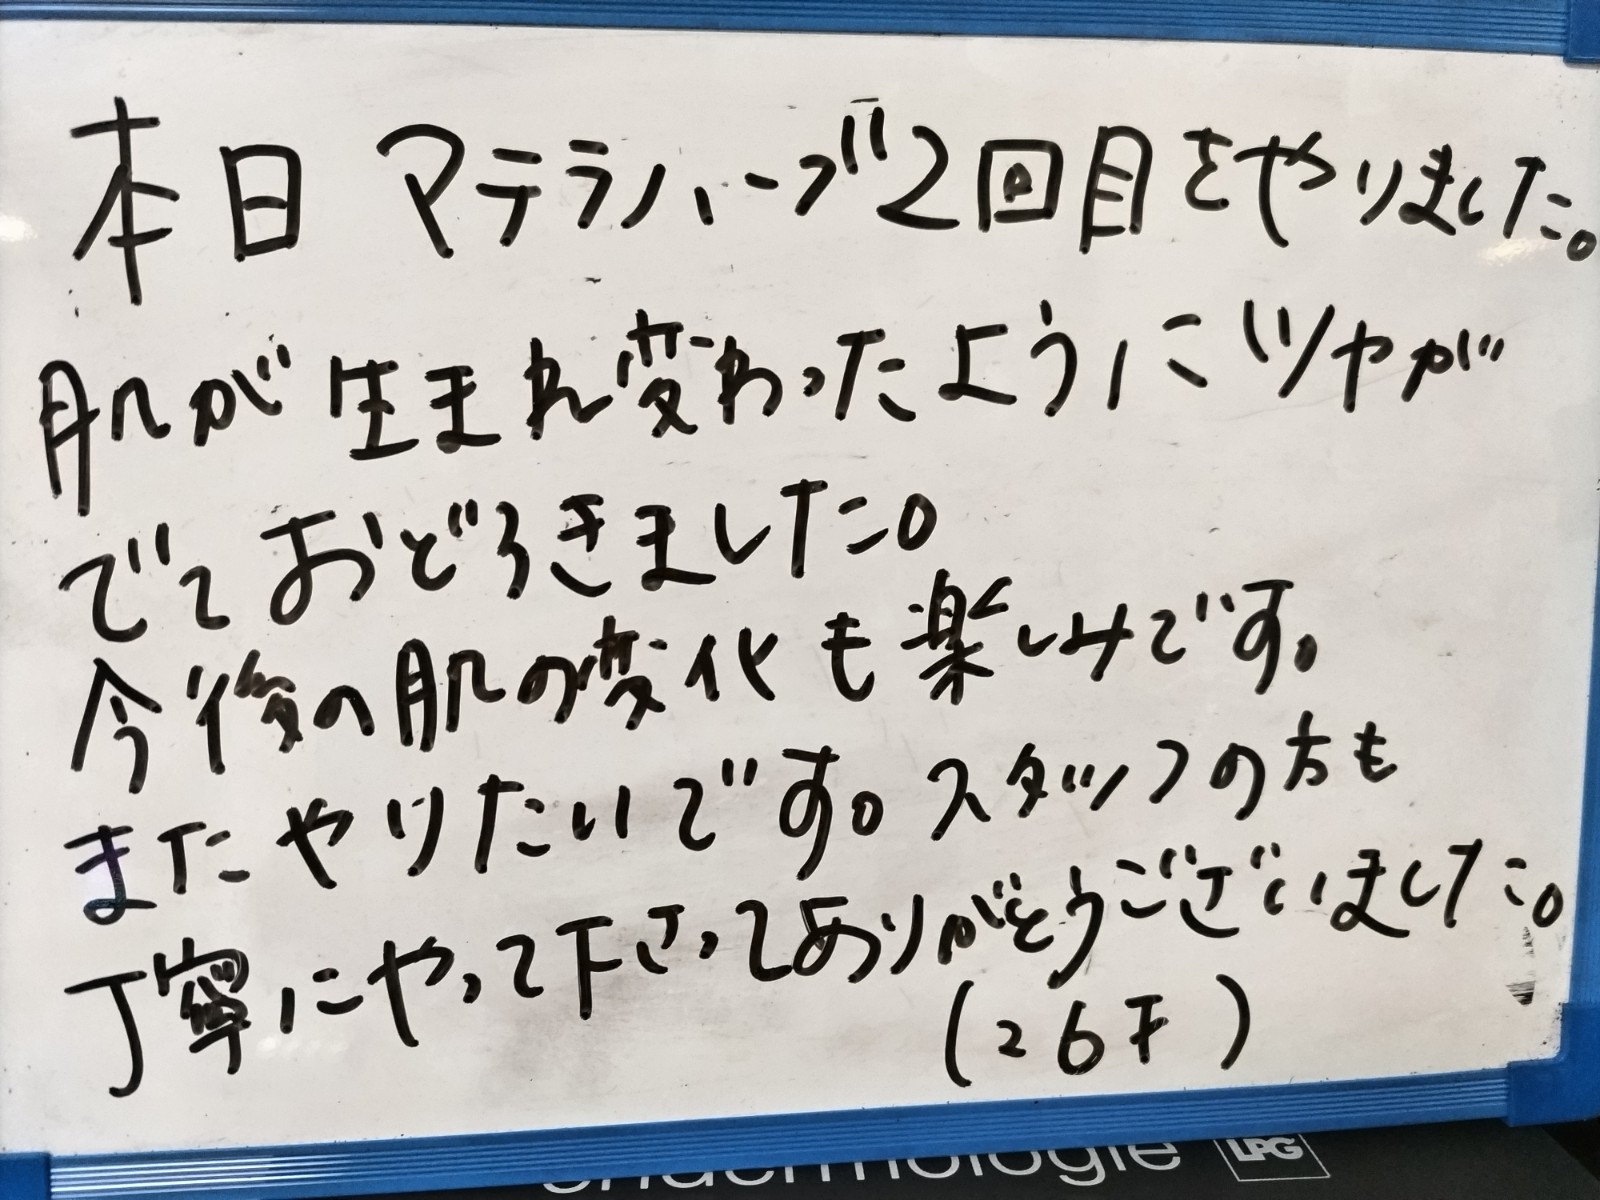 本日 マテラハーブ2回目をやりました。
肌が生まれ変わったようにツヤが
でておどろきました。
今後の肌の変化も楽しみです。
またやりたいです。スタッフの方も
丁寧にやって下さってありがとうございました。
(26才)
endermologie LPG